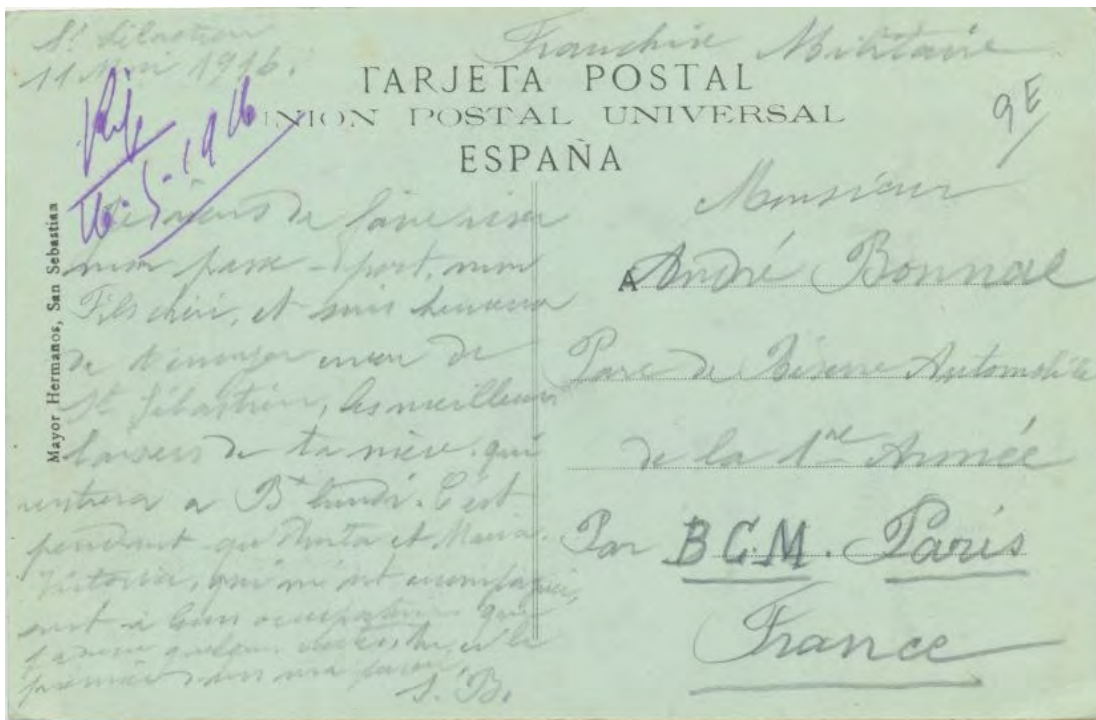 St Sébastien
11 Mai 1916.
Franchise Militaire
TARJETA POSTAL
UNION POSTAL UNIVERSAL
ESPAÑA
9E
16-5-1916
Mayor Hermanos, San Sebastian
Je viens de faire viser
mon passe-port, mon
Fils chéri, et suis heureuse
de t'envoyer encore de
St Sébastien, les meilleurs
baisers de ta mère qui
rentrera a Bx lundi. C'est
pendant que et Maria
Victoria, qui m'ont accompagnée,
sont à leurs occupations que
quelques
première
S. B.
Monsieur
A André Bonnal
Parc de Réserve Automobile
de la 1re Armée
Par B.C.M. Paris
France